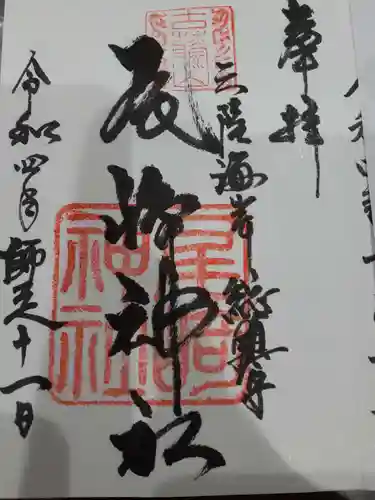 奉拝
三陸海岸総奥宮
尾崎神社
令和四年師走十一日
尾崎
神社